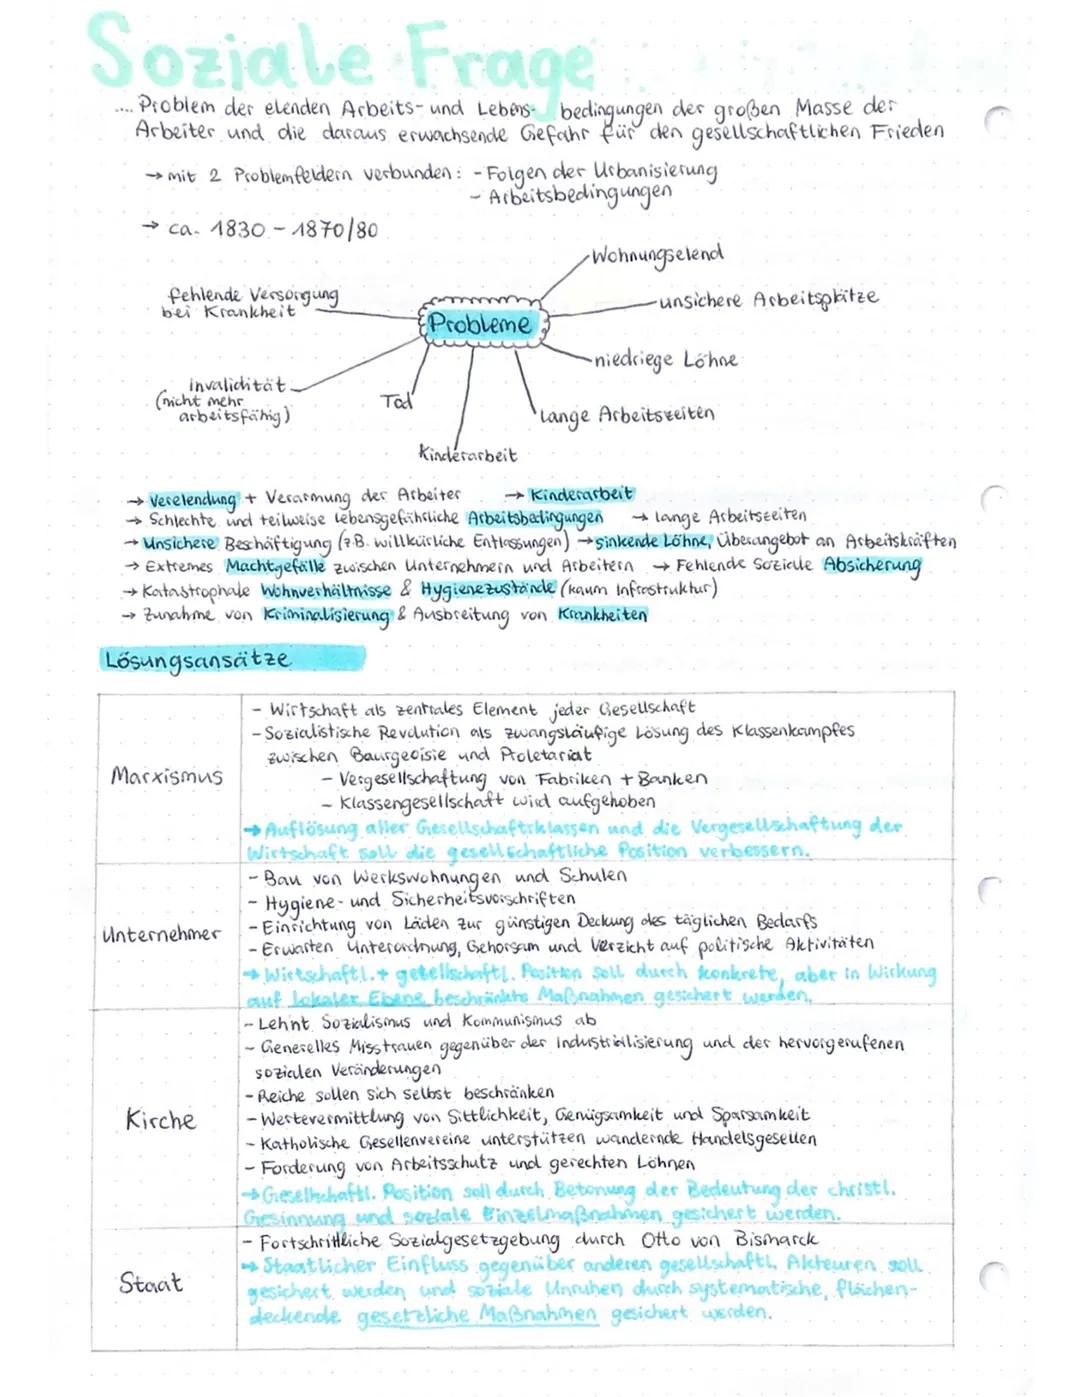 Soziale Frage
.... Problem der elenden Arbeits- und Lebens- bedingungen der großen Masse der
Arbeiter und die daraus erwachsende Gefahr für den gesellschaftlichen Frieden
→ mit 2 Problemfeldern verbunden: - Folgen der Urbanisierung
- Arbeitsbedingungen
→ ca. 1830 - 1870/80
Wohnungselend
fehlende Versorgung
bei Krankheit
unsichere Arbeitsplätze
Probleme
niedriege Löhne
Invalidität
(nicht mehr
arbeitsfähig)
Tod
lange Arbeitszeiten
Kinderarbeit
→ Verelendung + Verarmung der Arbeiter → Kinderarbeit
→ Schlechte und teilweise lebensgefährliche Arbeitsbedingungen → lange Arbeitszeiten
→ Unsichere Beschäftigung (z.B. willkürliche Entlassungen) → sinkende Löhne, Überangebot an Arbeitskräften
→ Extremes Machtgefälle zwischen Unternehmern und Arbeitern → Fehlende Soziale Absicherung
→ Katastrophale Wohnverhältnisse & Hygienezustände (kaum Infrastruktur)
→ Zunahme von Kriminalisierung & Ausbreitung von Krankheiten
Lösungsansätze
Marxismus
- Wirtschaft als zentrales Element jeder Gesellschaft
- Sozialistische Revolution als zwangsläufige Lösung des Klassenkampfes
zwischen Baurgeoisie und Proletariat
- Vergesellschaftung von Fabriken + Banken
- Klassengesellschaft wird aufgehoben
→ Auflösung aller Gesellschaftsklassen und die Vergesellschaftung der
Wirtschaft soll die gesellschaftliche Position verbessern.
Unternehmer
- Bau von Werkswohnungen und Schulen
- Hygiene- und Sicherheitsvorschriften
- Einrichtung von Läden zur günstigen Deckung des täglichen Bedarfs
- Erwarten Unterordnung, Gehorsam und Verzicht auf politische Aktivitäten
→ Wirtschaftl. + gesellschaftl. Position soll durch konkrete, aber in Wirkung
auf lokaler Ebene beschränkte Maßnahmen gesichert werden.
Kirche
- Lehnt Sozialismus und Kommunismus ab
- Generelles Misstrauen gegenüber der Industrialisierung und der hervorgerufenen
sozialen Veränderungen
- Reiche sollen sich selbst beschränken
- Wertevermittlung von Sittlichkeit, Genügsamkeit und Sparsamkeit
- Katholische Gesellenvereine unterstützen wandernde Handelsgesellen
- Forderung von Arbeitsschutz und gerechten Löhnen
→ Gesellschaftl. Position soll durch Betonung der Bedeutung der christl.
Gesinnung und soziale Einzelmaßnahmen gesichert werden.
Staat
- Fortschrittliche Sozialgesetzgebung durch Otto von Bismarck
→ Staatlicher Einfluss gegenüber anderen gesellschaftl. Akteuren soll
gesichert werden und soziale Unruhen durch systematische, flächen-
deckende gesetzliche Maßnahmen gesichert werden.